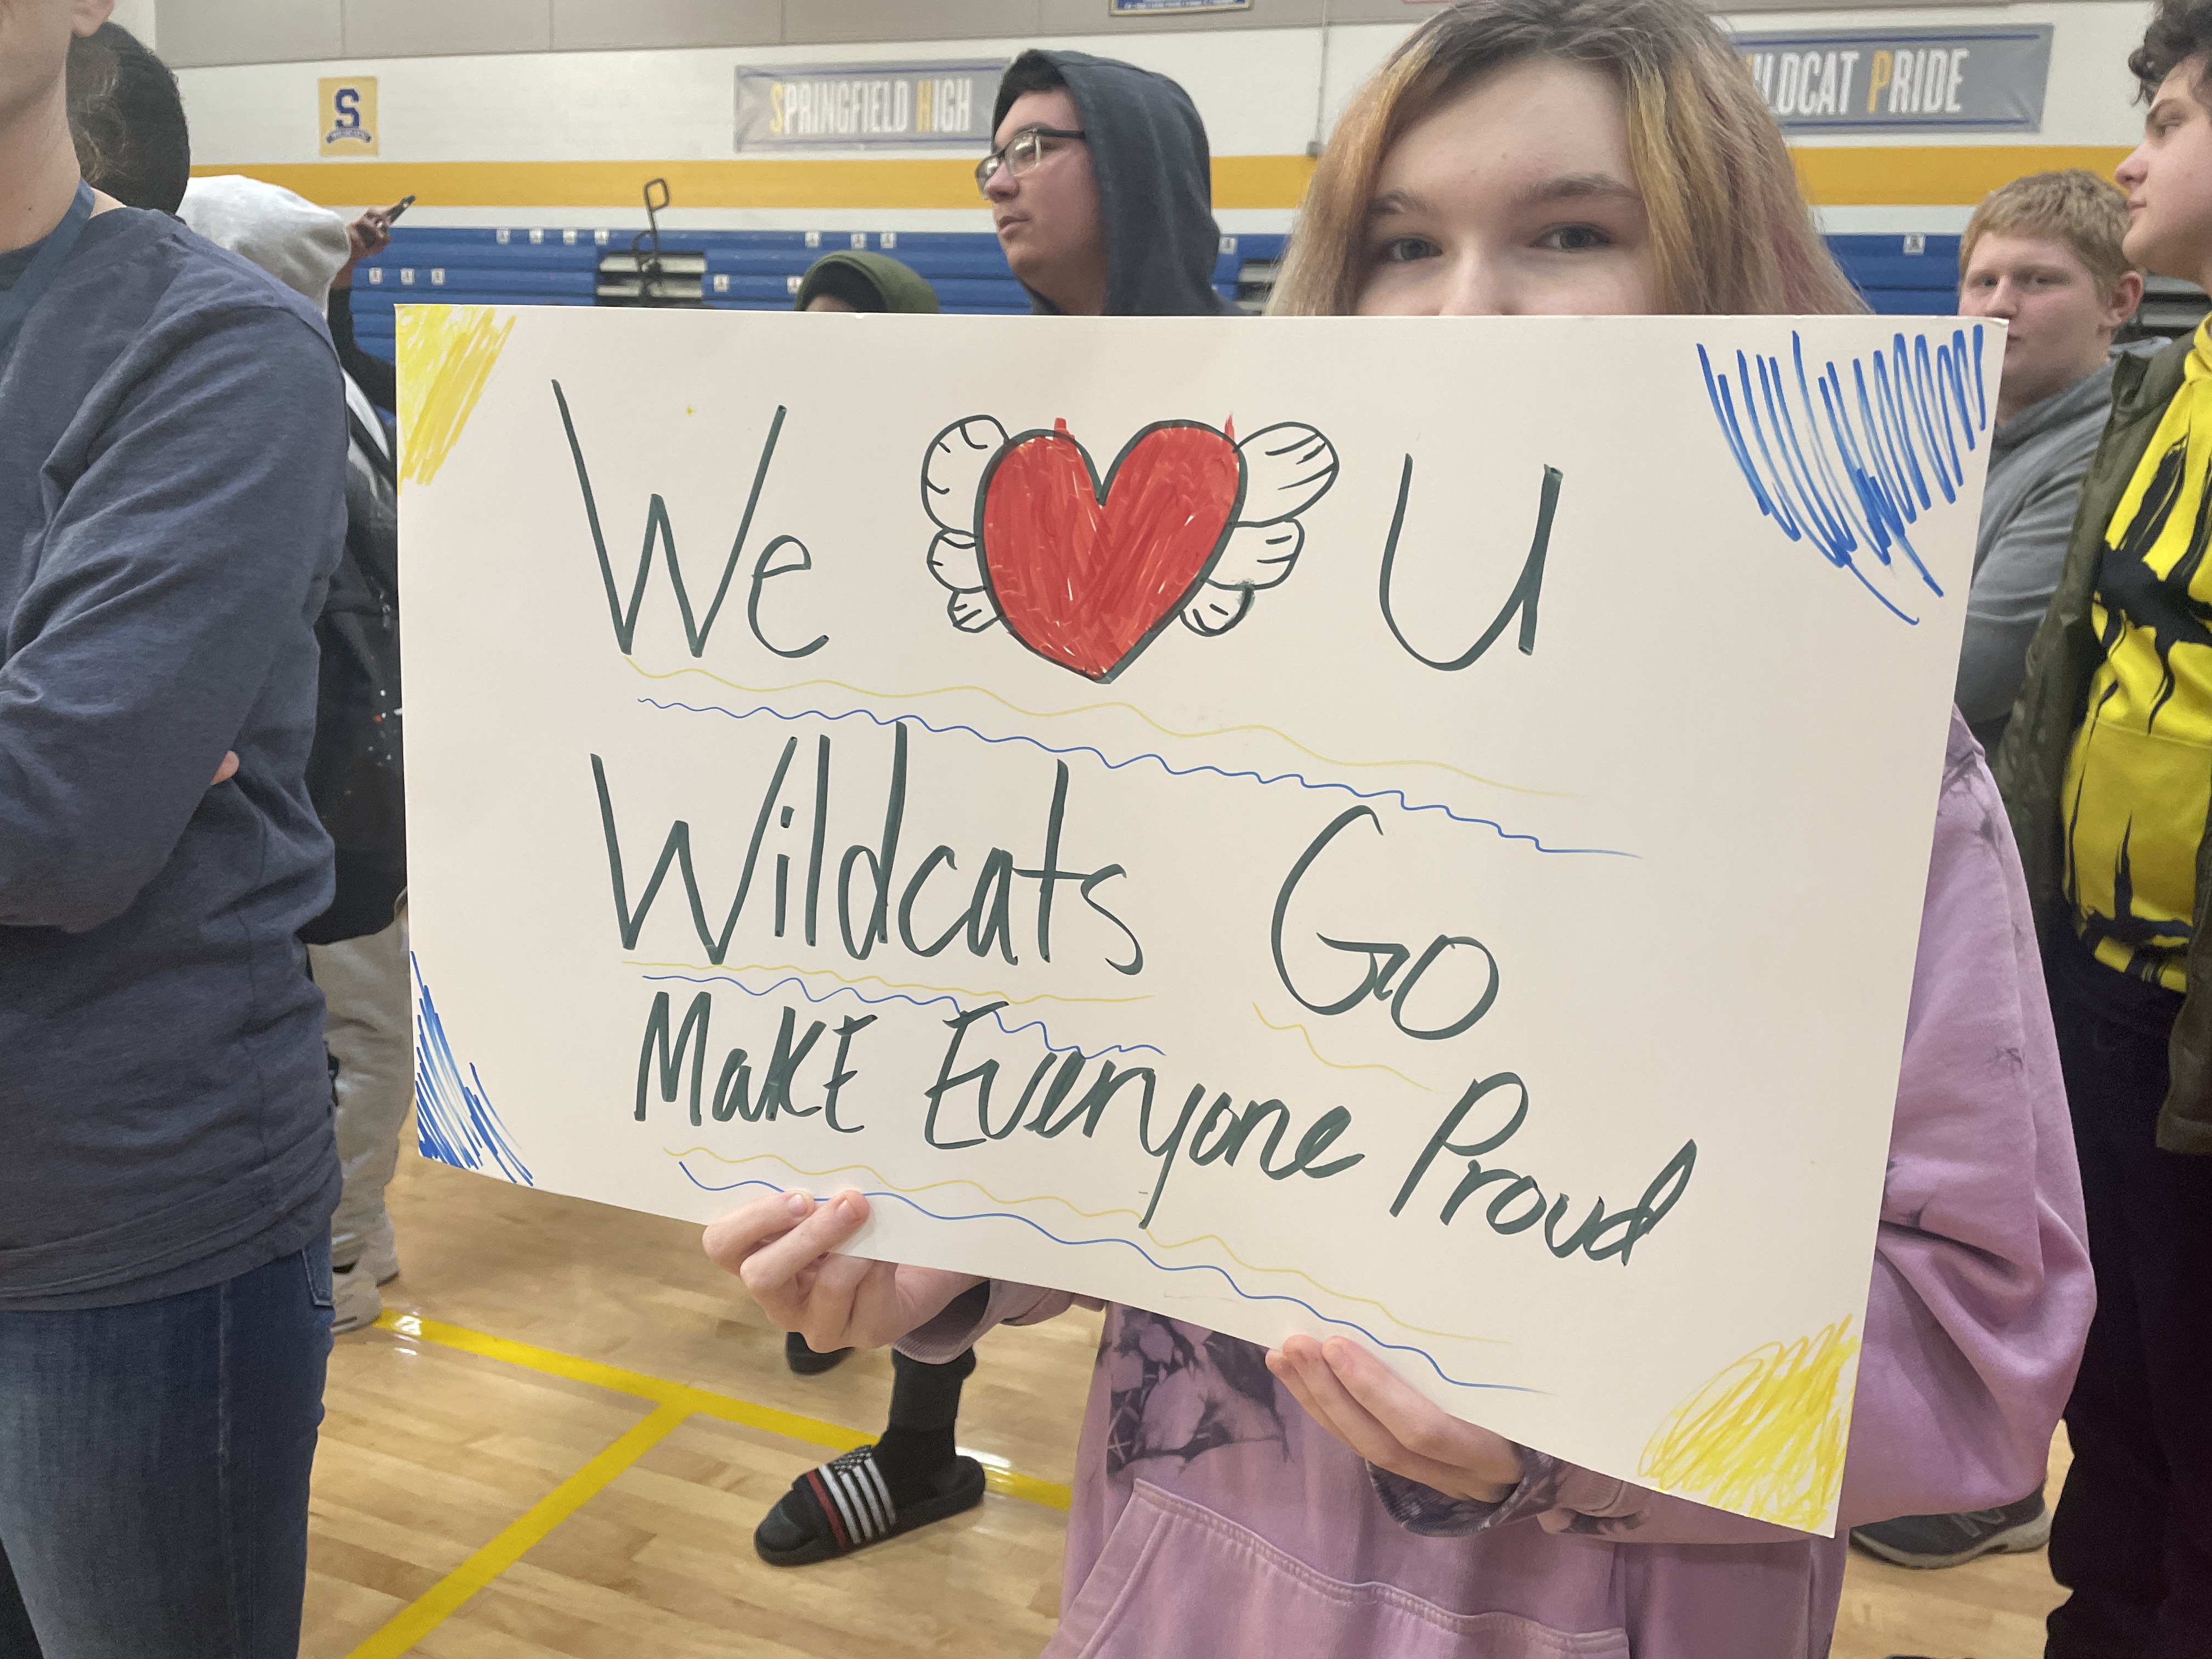 S
SPRINGFIELD HIGH
WILDCAT PRIDE
We U
Wildcats Go
MakE Everyone Proud